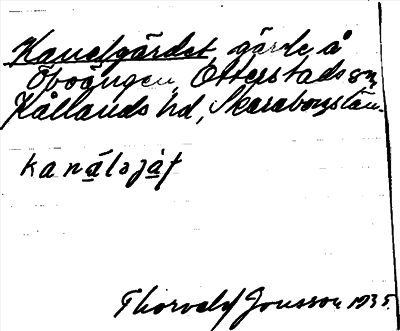 Kanelgärdet, gärde å
Öboängen, Otterstads sn,
Kållands hd, Skaraborgs län.
kanálaját
Thorvald Jonsson 1935.